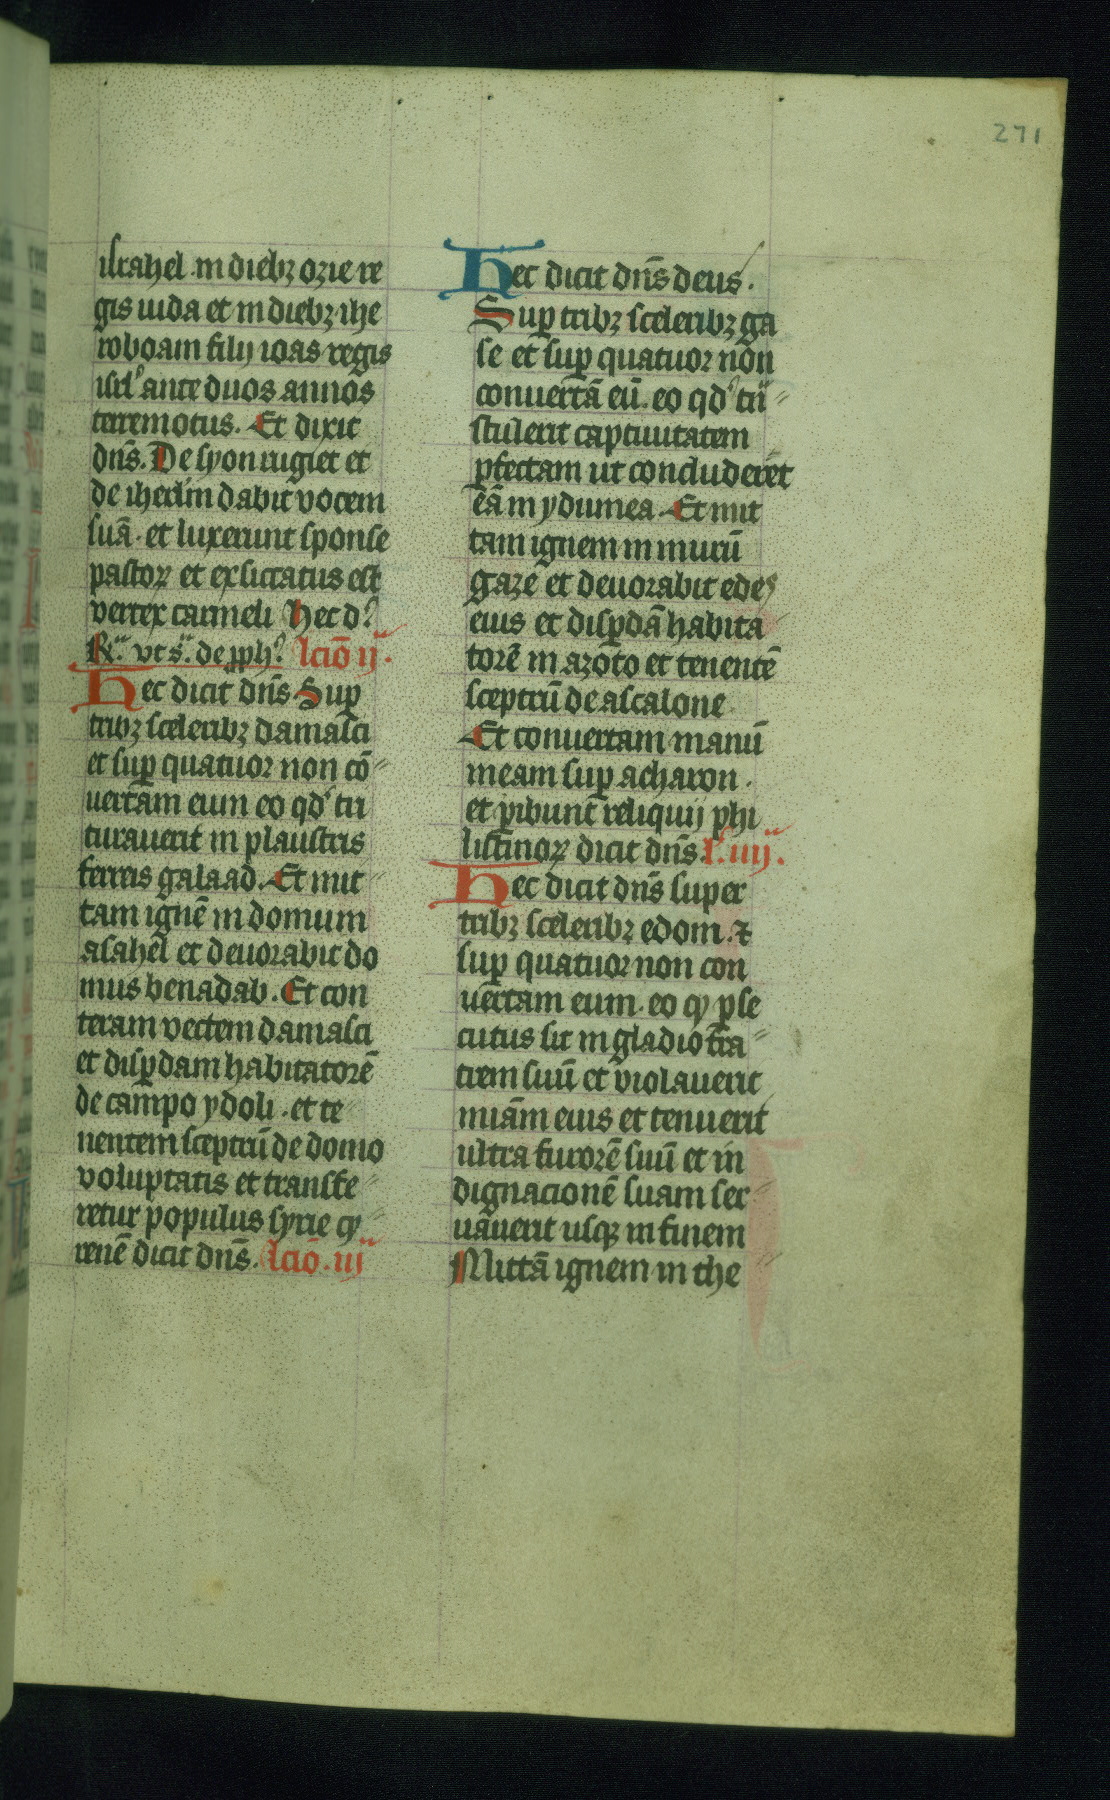 271
israhel in diebꝫ ozie re
gis iuda et in diebꝫ ihe
roboam filij ioas regis
isrl' ante duos annos
terremotus. Et dixit
dn̄s. De syon rugiet et
de iherl̄m dabit vocem
suā. et luxerunt sponse
pastoꝝ et exsiccatus est
vertex carmeli Hec d'.
R̄. vt s. de ꝓph'. lcīo ij.
Hec dicit dn̄s Suꝑ
tribꝫ sceleribꝫ damasci
et suꝑ quatuor non cō
uertam eum eo qd' tri
turauerit in plaustris
ferreis galaad. Et mit
tam ignē in domum
asahel et deuorabit do
mus benadab. Et con
teram vectem damasci
et disꝑdam habitatorē
de campo ydoli. et te
nentem sceptrū de domo
voluptatis et transfe
retur populus syrie cy
renē dicit dn̄s. lcīo. iij
Hec dicit dn̄s deus.
Suꝑ tribꝫ sceleribꝫ ga
se et suꝑ quatuor non
convertā eū. eo qd' trā
stulerit captiuitatem
ꝑfectam ut concluderet
eā in ydumea. Et mit
tam ignem in murū
gaze et deuorabit edes
eius et disꝑdā habita
torē in azoto et tenentē
sceptrū de ascalone
Et convertam manū
meam suꝑ acharon.
et ꝑibunt reliquij phi
listinoꝝ dicit dn̄s. l'. iiij.
Hec dicit dn̄s super
tribꝫ sceleribꝫ edom. ⁊
suꝑ quatuor non con
uertam eum. eo qͥ ꝑse
cutus sit in gladio fra
trem suū et violauerit
miām eius et tenuerit
ultra furorē suū et in
dignacionē suam ser
uauerit usqꝫ in finem
Mittā ignem in the